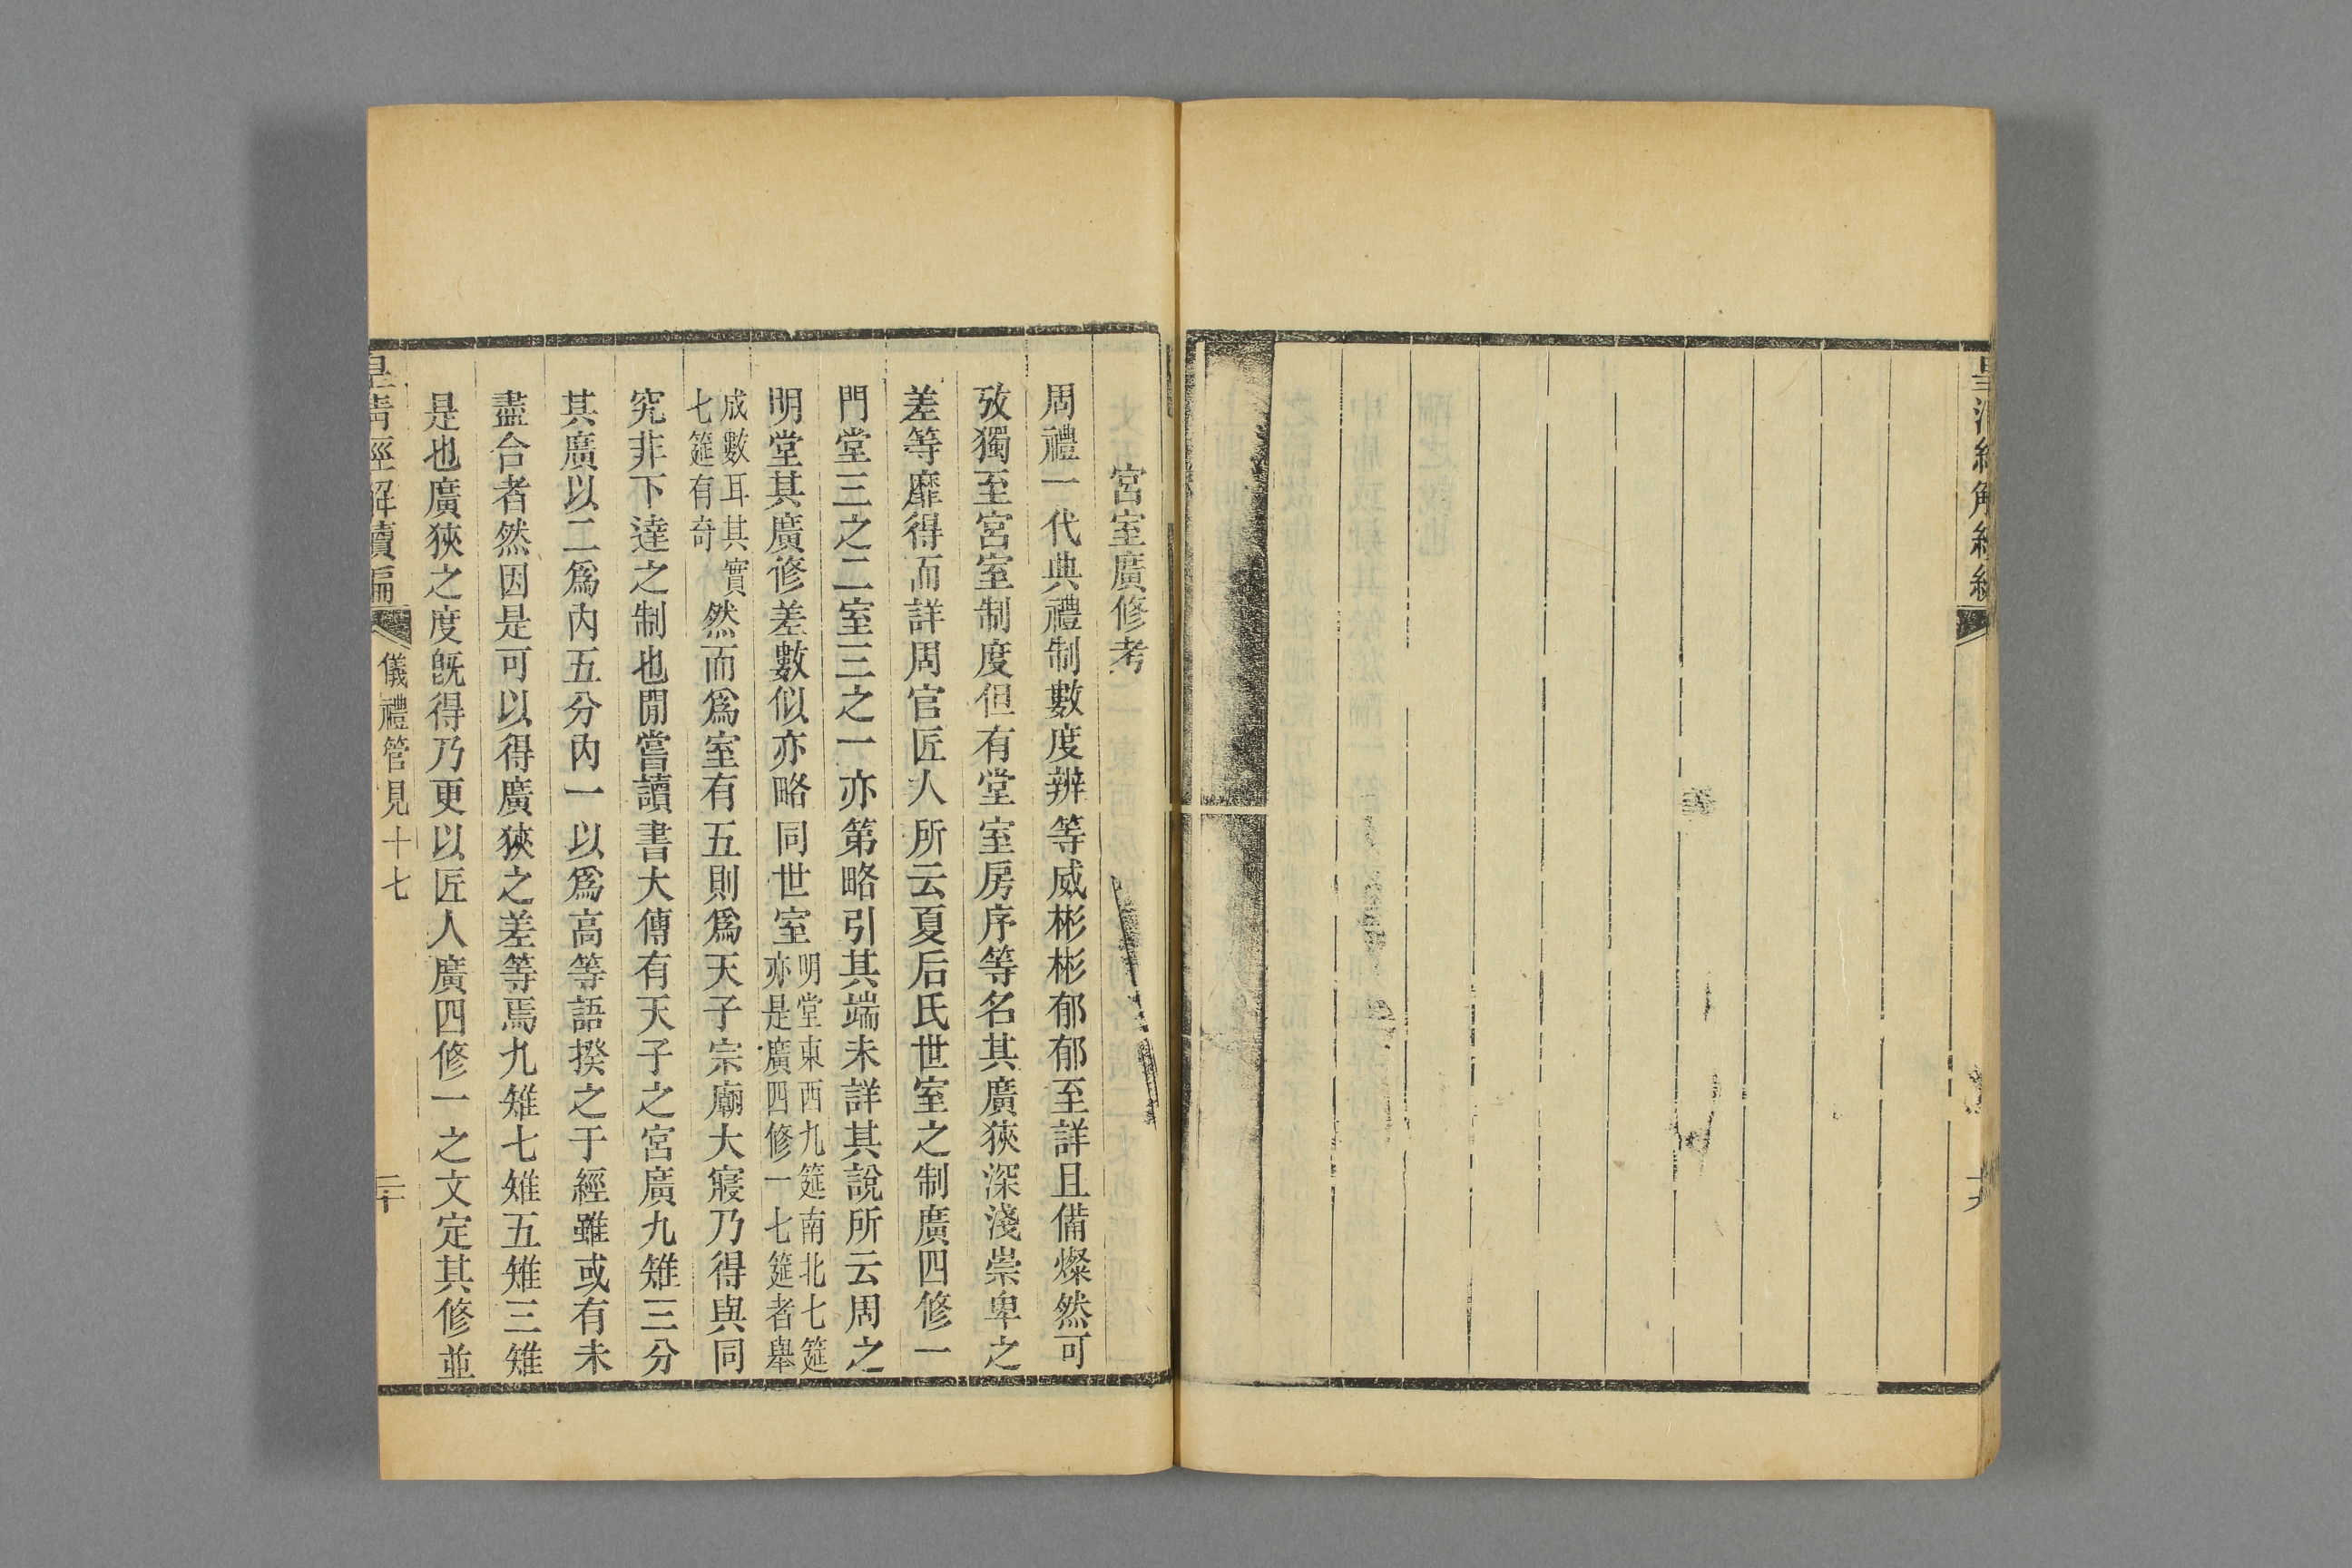 皇清經解續編
宮室廣修考
周禮一代典禮制數度辨等威彬彬郁郁至詳且備燦然可
攷獨至宮室制度但有堂室房序等名其廣狹深淺崇卑之
差等靡得而詳周官匠人所云夏后氏世室之制廣四修一
門堂三之二室三之一亦第略引其端未詳其說所云周之
明堂其廣修差數似亦略同世室明堂東西九筵南北七筵亦是廣四修一七筵者舉
成數耳其實七筵有奇然而爲室有五則爲天子宗廟大寢乃得與同
究非下達之制也閒嘗讀書大傳有天子之宮廣九雉三分
其廣以二爲內五分內一以爲高等語揆之于經雖或有未
盡合者然因是可以得廣狹之差等焉九雉七雉五雉三雉
是也廣狹之度旣得乃更以匠人廣四修一之文定其修並
皇清經解續編
儀禮管見十七
二十